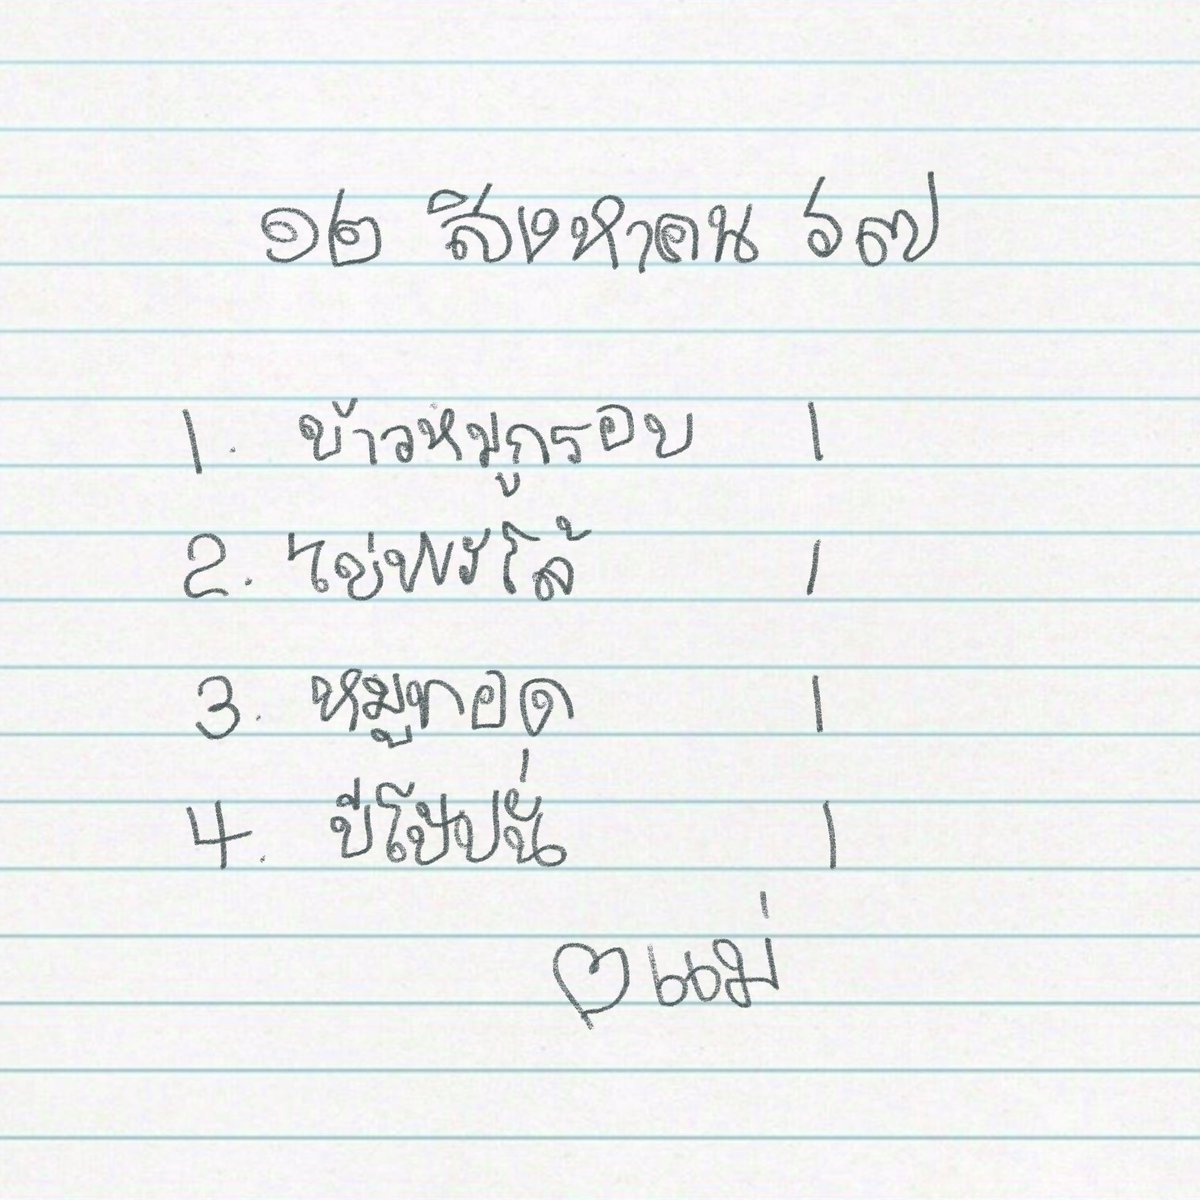 ๑๒ สิงหาคม ๖๗
1. ข้าวหมูกรอบ 1
2. ไข่พะโล้ 1
3. หมูทอด 1
4. บีโป้ปั่น 1
♡แม่